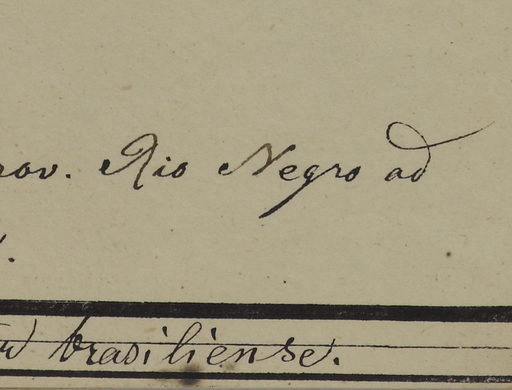 rov. Rio Negro ad
brasiliense.